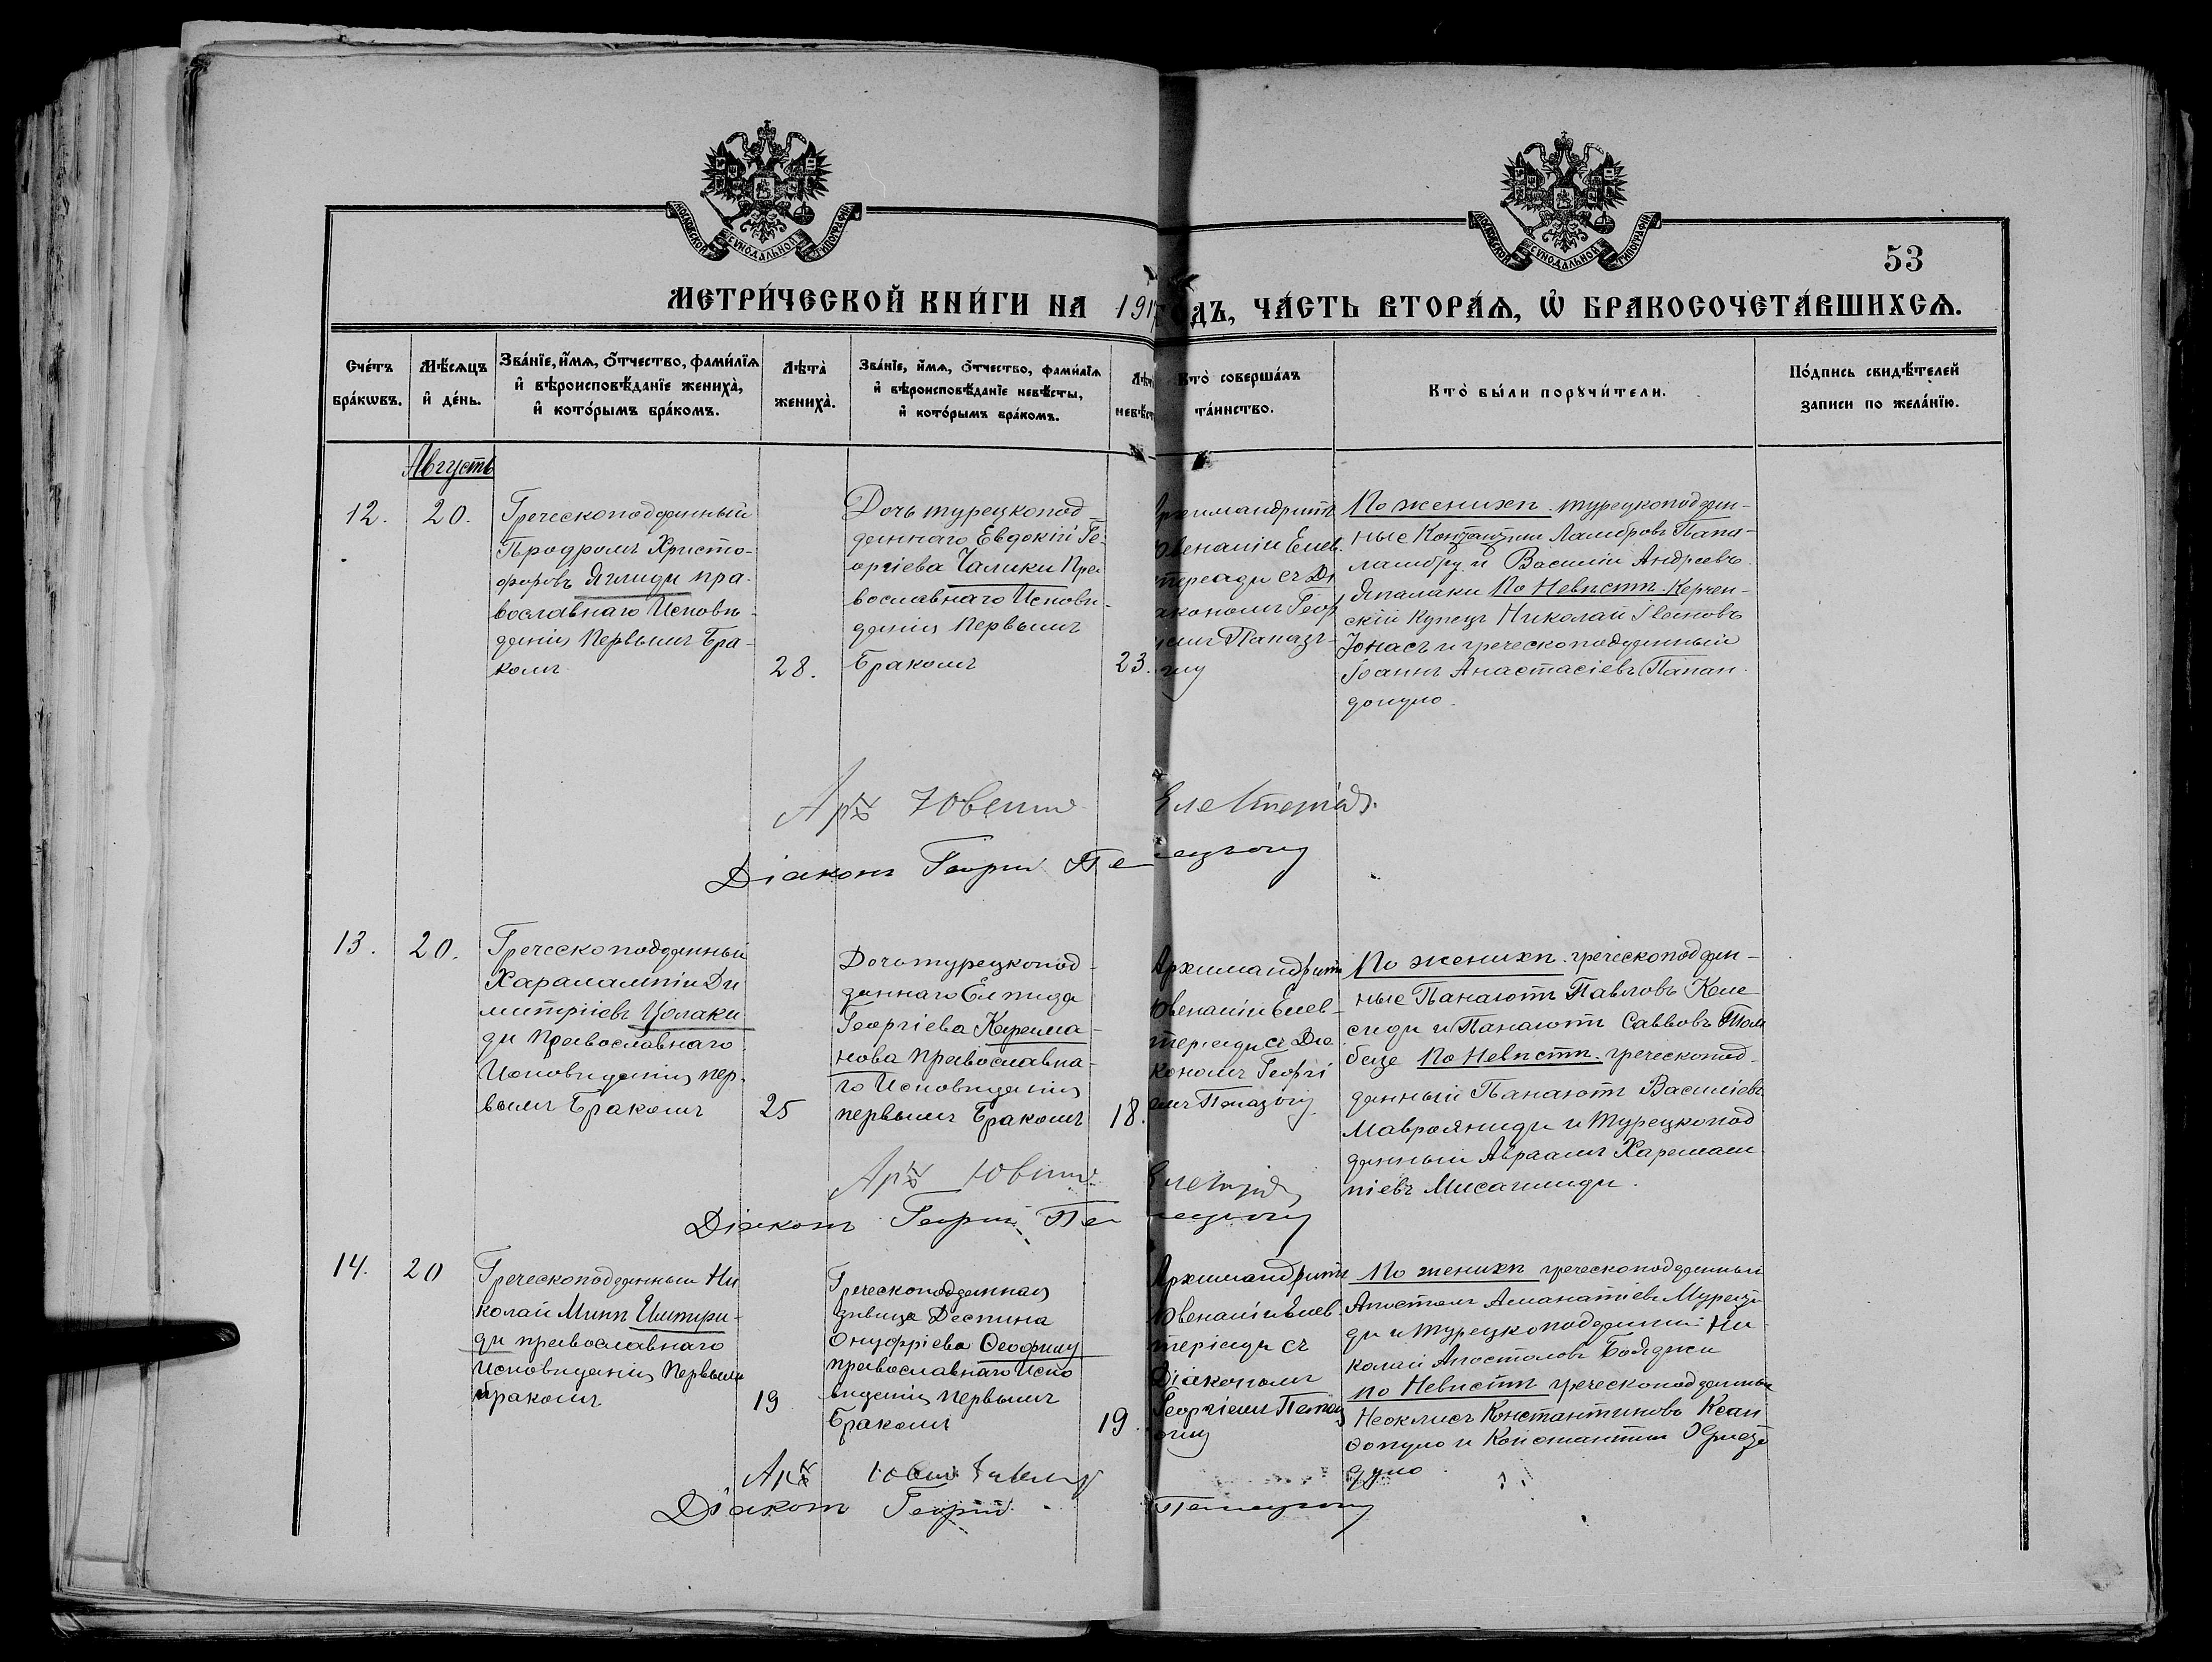 МОСКОВСКОЙ СѴНОДАЛЬНОЙ ТИПОГРАФІИ
МОСКОВСКОЙ СѴНОДАЛЬНОЙ ТИПОГРАФІИ
53
МЕТРИ́ЧЕСКОЙ КНИ́ГИ НА 1917 ГОДЪ, ЧА́СТЬ ВТОРА́Ѧ, Ѡ҆ БРАКОСОЧЕТА́ВШИХСѦ.
Сче́тъ бра́кѡвъ.
Мѣ́сѧцъ и҆ де́нь.
Зва́нїе, и҆́мѧ, ѻ҆́тчество, фами́лїѧ
и҆ вѣроисповѣ́данїе жениха̀,
и҆ кото́рымъ бра́комъ.
Лѣта̀ жениха̀.
Зва́нїе, и҆́мѧ, ѻ҆́тчество, фами́лїѧ
и҆ вѣроисповѣ́данїе невѣ́сты,
и҆ кото́рымъ бра́комъ.
Лѣт
невѣст
Кто̀ соверша́лъ
та́инство.
Кто̀ бы́ли порꙋчи́тели.
По́дпись свидѣ́телей
записи по жела́нїю.
Августъ
12.
20.
Греческоподданный
Продромъ Христо-
форовъ Яглиди пра-
вославнаго Исповѣ-
данія Первымъ Бра-
комъ
28.
Дочь турецкопод-
даннаго Евдокія Ге-
оргіева Чалики Пра
вославнаго Исповѣ-
данія Первымъ
Бракомъ
23.
Архимандритъ
Ювеналій Елев-
теріади съ Ді
акономъ Геор
Папазъ-
оглу
По женихѣ турецкоподдан-
ные Константинъ Ламбровъ Папа-
ламбру и Василій Андреевъ
Япалаки По Невѣстѣ Керчен-
скій купецъ Николай Ивановъ
Іонасъ и греческоподданный
Іоаннъ Анастасіевъ Папан-
допуло.
Арх Ювенал Елевтеріад
Діаконъ Георгій Папазъоглу
13.
20.
Греческоподданный
Харалампій Ди
митріевъ Цолаки
ди Православнаго
Исповѣданія пер-
вымъ Бракомъ
25
Дочь турецкопод-
даннаго Елпида
Георгіева Карама-
нова Православна-
го Исповѣданія
первымъ Бракомъ
18.
Архимандритъ
Ювеналій Елев-
теріади съ Діа
кономъ Георгі
емъ Папазоглу
По женихѣ греческоподдан-
ные Панаіотъ Павловъ Келе
сиди и Панаіотъ Саввовъ
По Невѣстѣ греческопод-
данный Панаіотъ Василіевъ
Маврояниди и Турецкопод
данный Авраамъ Харалам-
піевъ Мисаилиди.
Арх Ювенал Елевтеріад
Діаконъ Георгій Папазъоглу
14.
20
Греческоподданный Ни
колай Минн
ди православнаго
Исповѣданія Первымъ
бракомъ
19
Греческоподданная
дѣвица Деспина
Онуфріева Ѳеофилу
православнаго Испо
вѣданія Первымъ
Бракомъ
19.
Архимандритъ
Ювеналій Елев-
теріади съ
Діакономъ
Георгіемъ Папаз
оглу
По женихѣ греческоподданный
Апостолъ
ди и Турецкоподданный Ни
колай Апостоловъ Бояджи
по Невѣстѣ греческоподданные
Неоклисъ Константиновъ Ксан
допуло и Константинъ
дуло
Арх Ювен
Діаконъ Георгій Папазъоглу